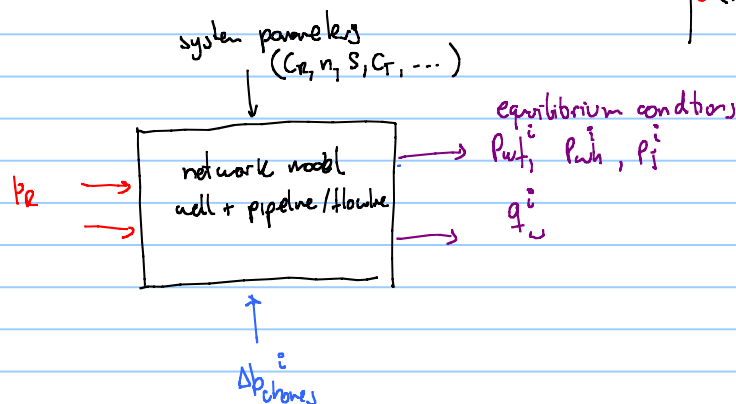 system parameters
(C_R, n, S, C_T, ...)
equilibrium conditions
P_wf^i, P_wh^i, P_j^i
network model
well + pipeline/flowline
p_R
q_w^i
Δp_chokes^i